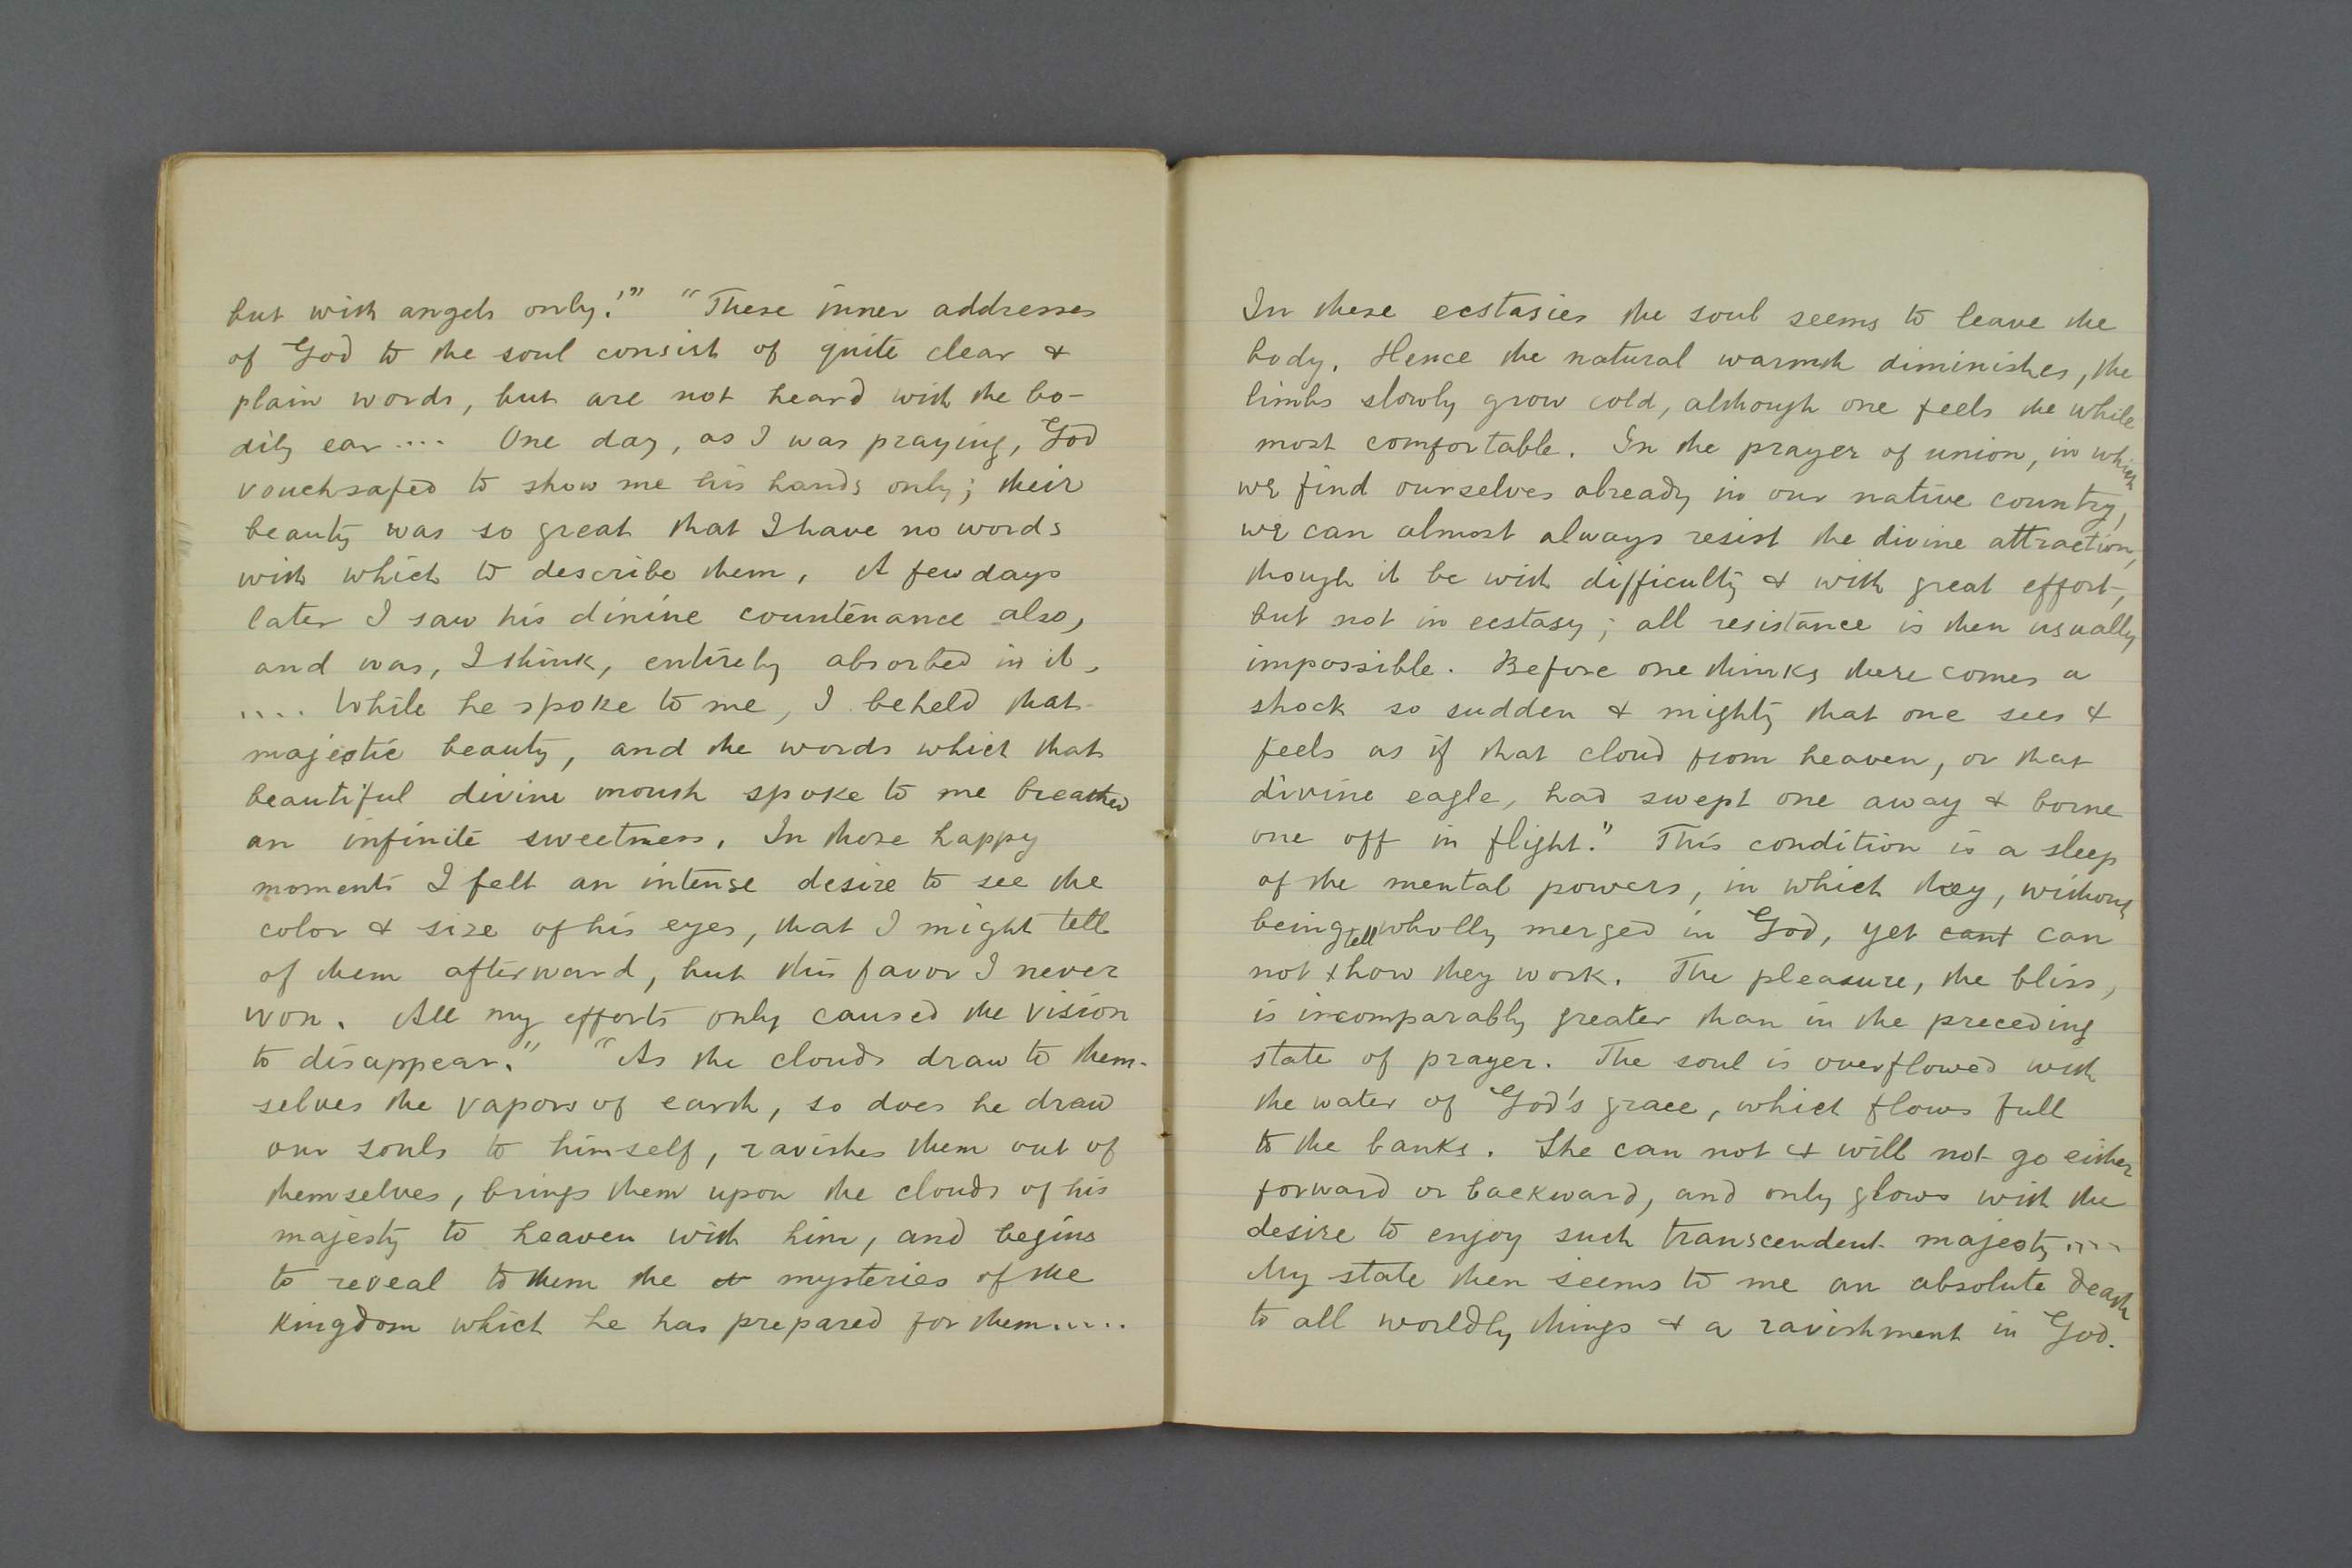 but with angels only.'" "These inner addresses
of God to the soul consist of quite clear &
plain words, but are not heard with the bo-
dily ear .... One day, as I was praying, God
vouchsafed to show me his hands only; their
beauty was so great that I have no words
with which to describe them. A few days
later I saw his divine countenance also,
and was, I think, entirely absorbed in it.
.... While he spoke to me, I beheld that
majestic beauty, and the words which that
beautiful divine mouth spoke to me breathed
an infinite sweetness. In those happy
moments I felt an intense desire to see the
color & size of his eyes, that I might tell
of them afterward, but this favor I never
won. All my efforts only caused the vision
to disappear." "As the clouds draw to them-
selves the vapors of earth, so does he draw
our souls to himself, ravishes them out of
themselves, brings them upon the clouds of his
majesty to heaven with him, and begins
to reveal to them the mysteries of the
kingdom which he has prepared for them.....
In these ecstasies the soul seems to leave the
body. Hence the natural warmth diminishes, the
limbs slowly grow cold, although one feels the while
most comfortable. In the prayer of union, in which
we find ourselves already in our native country,
we can almost always resist the divine attraction,
though it be with difficulty & with great effort,
but not in ecstasy; all resistance is then usually
impossible. Before one thinks there comes a
shock so sudden & mighty that one sees &
feels as if that cloud from heaven, or that
divine eagle, had swept one away & borne
one off in flight." This condition is a sleep
of the mental powers, in which they, without
being wholly merged in God, yet cant can
not tell how they work. The pleasure, the bliss,
is incomparably greater than in the preceding
state of prayer. The soul is overflowed with
the water of God's grace, which flows full
to the banks. She can not & will not go either
forward or backward, and only glows with the
desire to enjoy such transcendent majesty....
My state then seems to me an absolute death
to all worldly things & a ravishment in God.